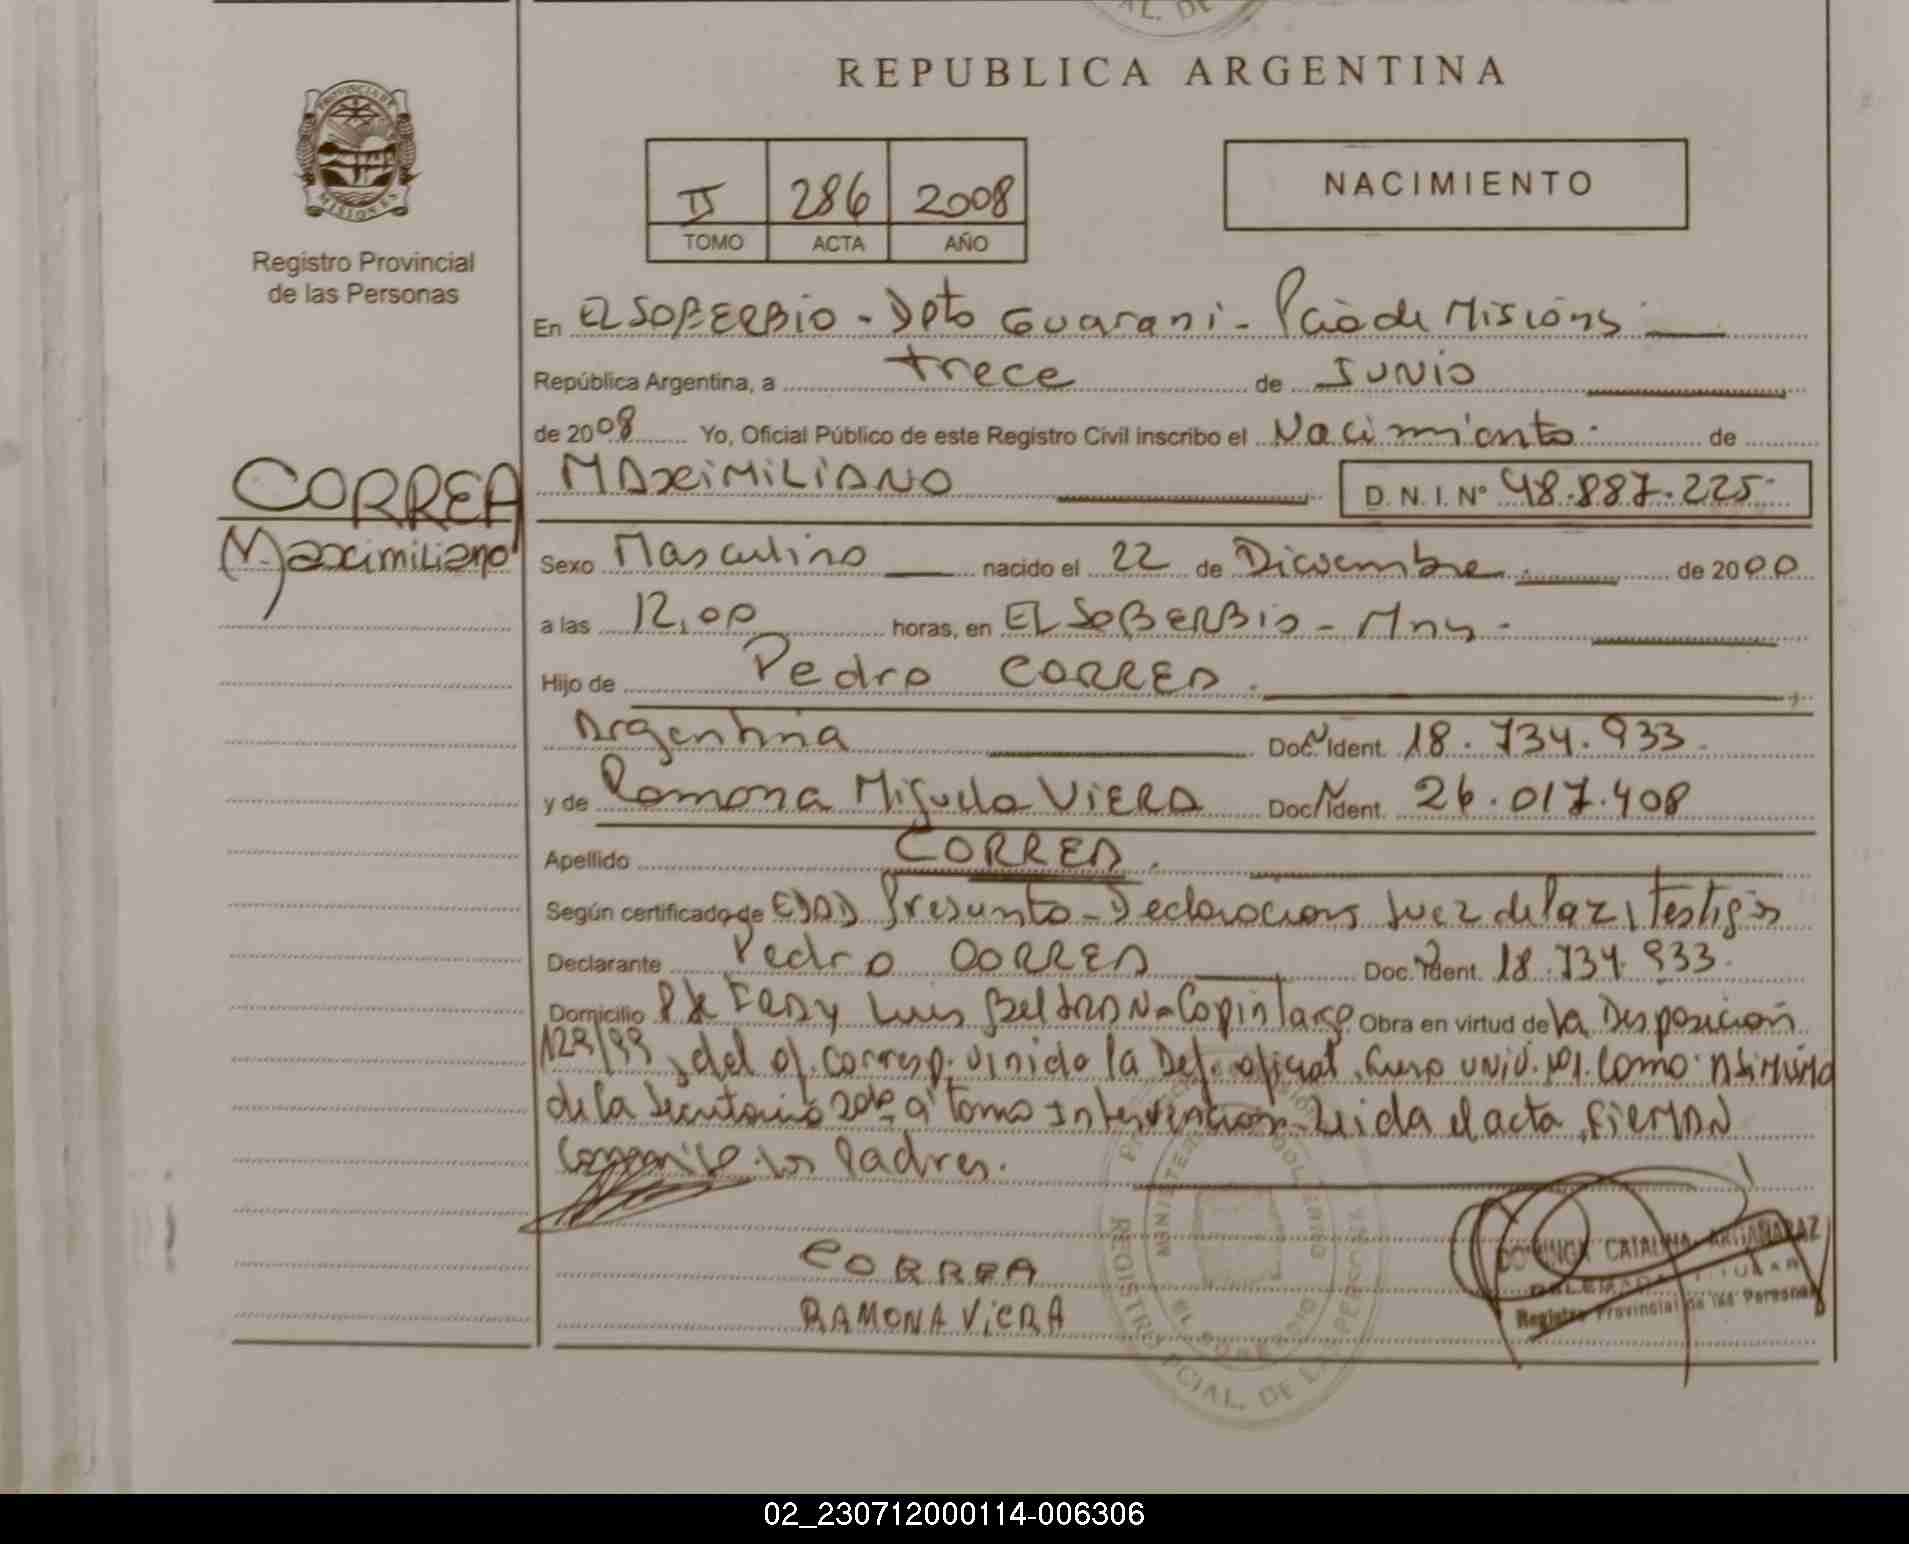 REPUBLICA ARGENTINA
PROVINCIA DE MISIONES
Registro Provincial
de las Personas
II 286 2008
TOMO ACTA AÑO
NACIMIENTO
En EL SOBERBIO - Dpto Guarani - Pcia de Misiones
República Argentina, a trece de JUNIO
de 2008 Yo, Oficial Público de este Registro Civil inscribo el Nacimiento de
CORREA
Maximiliano
MAXIMILIANO D. N. I. Nº 48.887.225
Sexo Masculino nacido el 22 de Diciembre de 2000
a las 12,00 horas, en EL SOBERBIO - Mns -
Hijo de Pedro CORREA
Argentina Doc. Ident. 18.734.933
y de Ramona Miguela VIERA Doc. Ident. 26.017.408
Apellido CORREA
Según certificado de EDAD Presunta - Declaracion Juez de Paz, Testigos
Declarante Pedro CORREA Doc. Ident. 18.734.933
Domicilio Luis BELTRAN Obra en virtud de la Disposición
del of. corresp. la Def. oficial como
de la Secretaria a Tomo Intervencion Leida el acta, FIRMAN
los Padres.
CORREA
RAMONA ViERA
DOMINGA CATALINA ARGAÑARAZ
DELEGADA TITULAR
Registro Provincial de las Personas
EL SOBERBIO
02_230712000114-006306